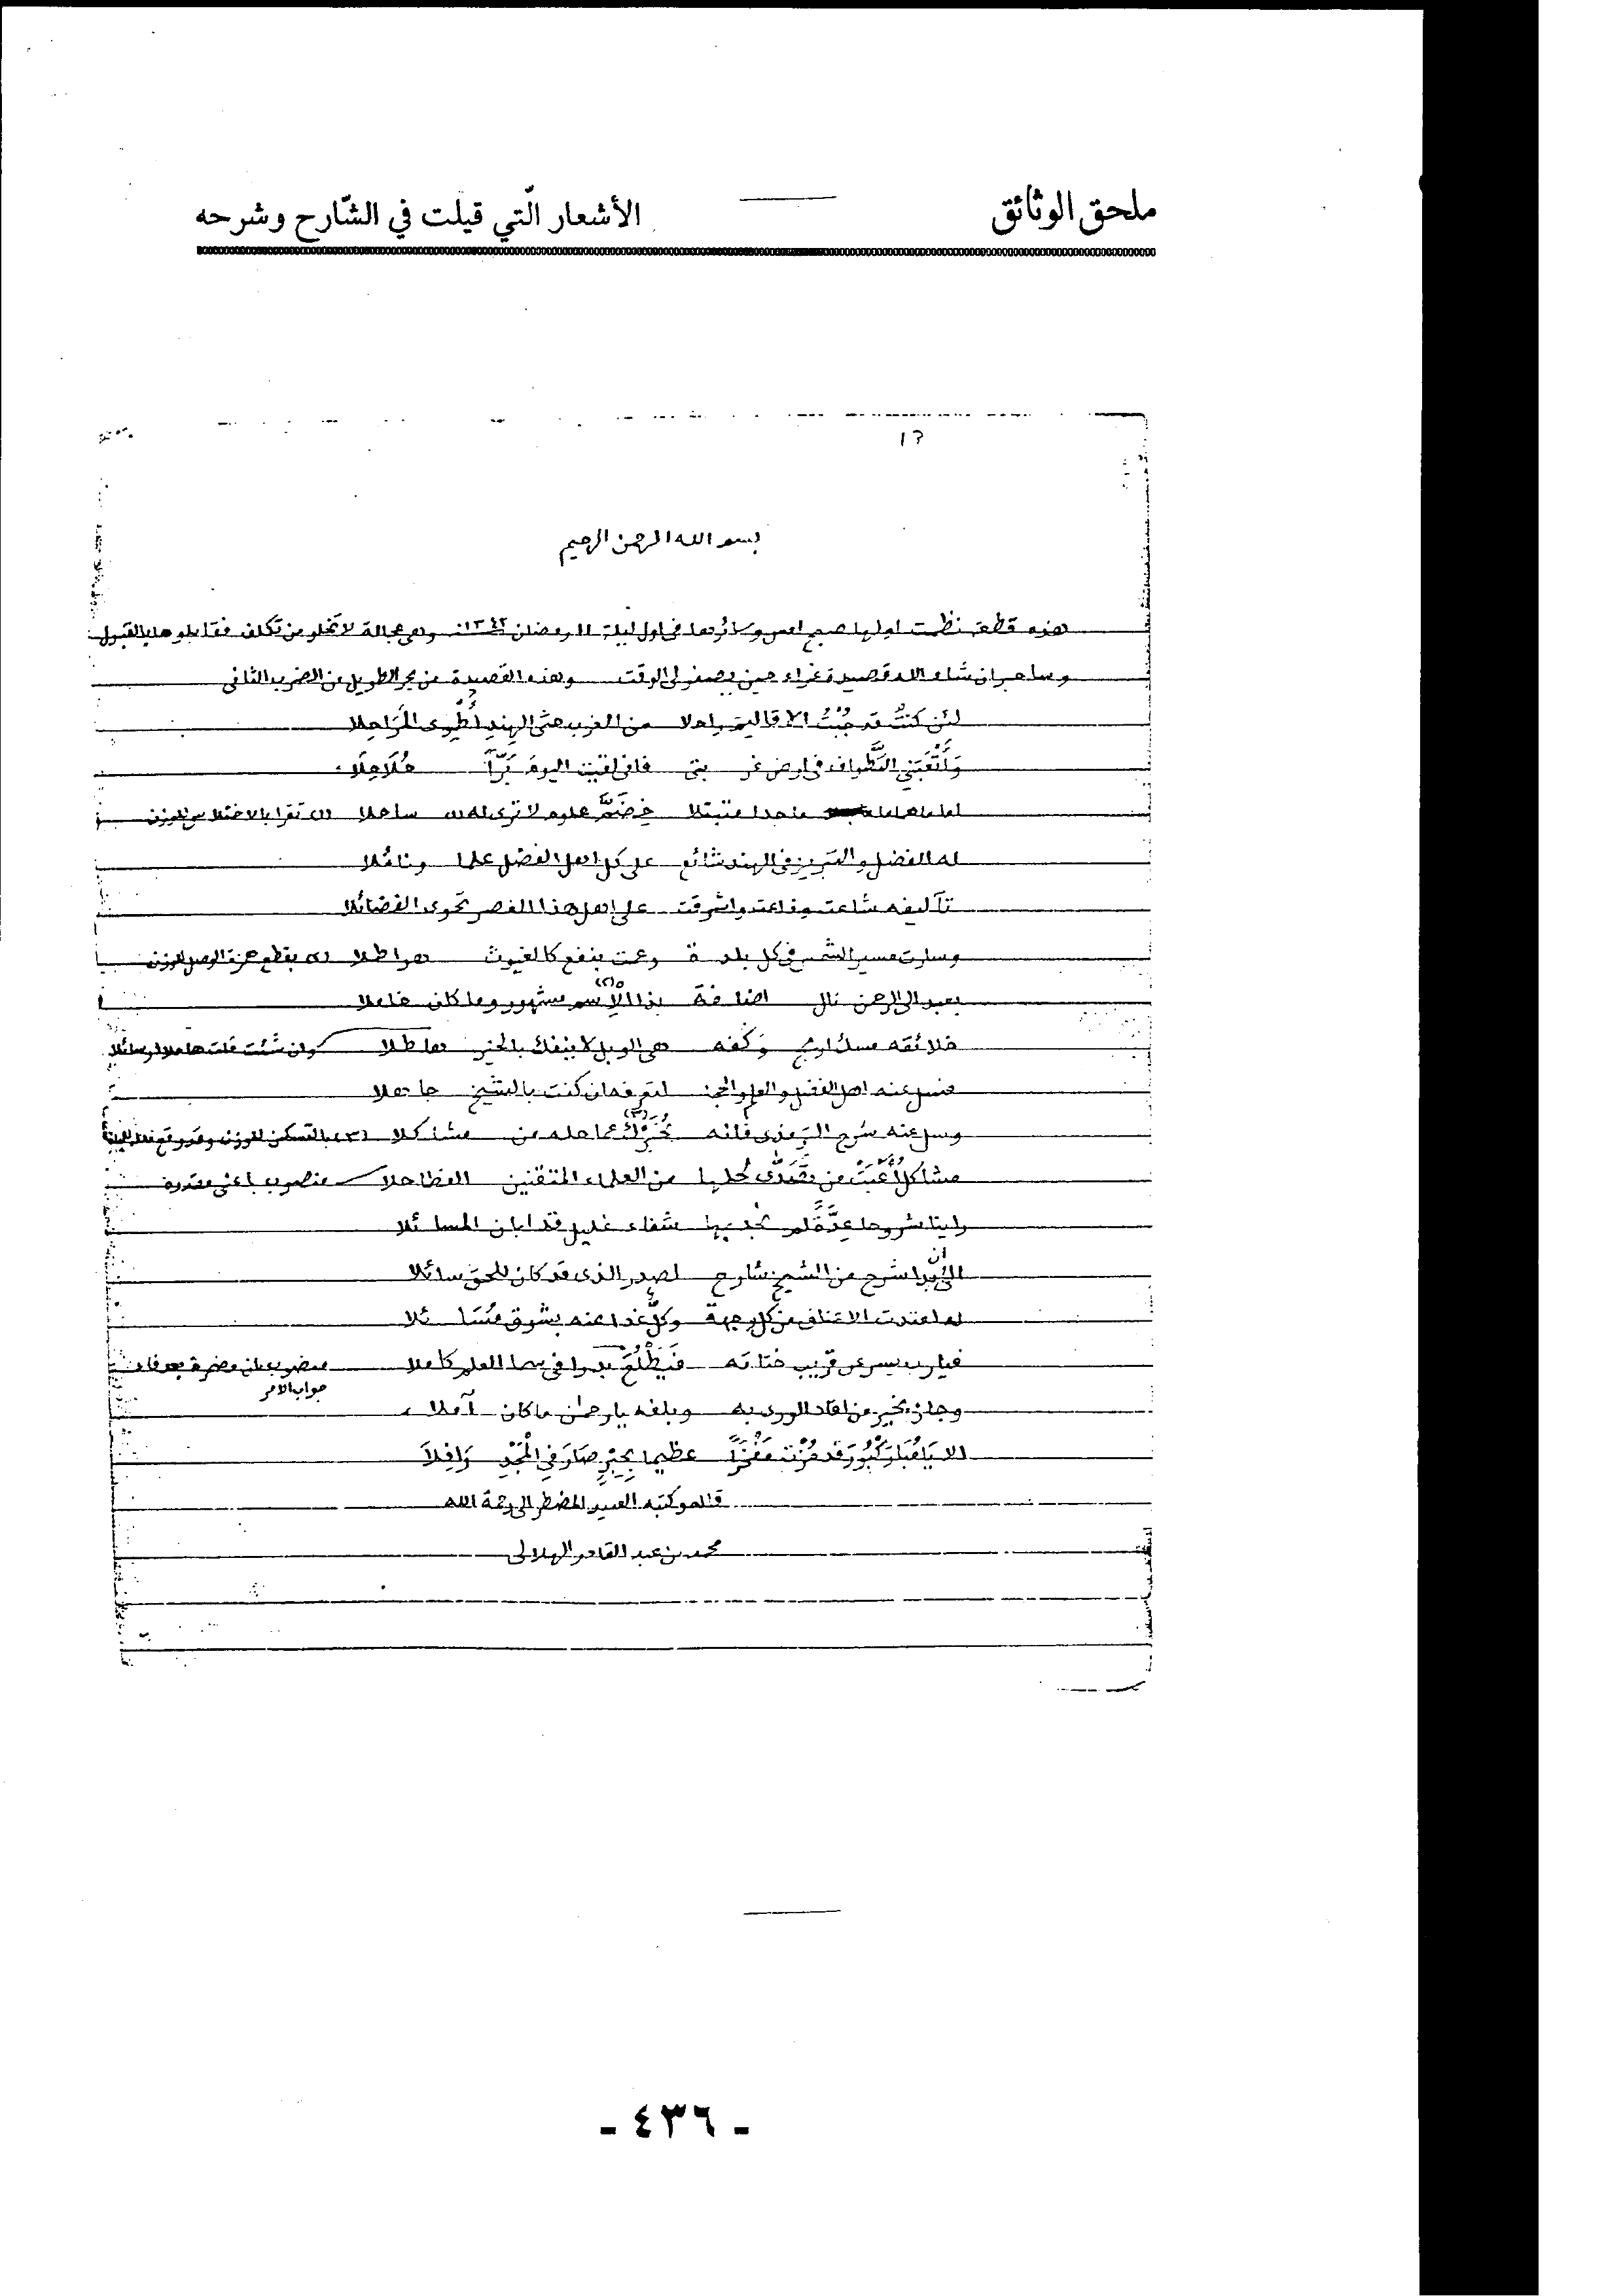 ملحق الوثائق
الأشعار الّتي قيلت في الشّارح وشرحه
١٣
بسم الله الرحمن الرحيم
هذه قطعة نظمت اولها صبح امس وسائرها في اول ليلة ١١ رمضان ١٣٤٢ وهي عجالة لا تخلو من تكلف فقابلوها بالقبول
وساحبر ان شاء الله قصيدة غراء حين يصفو لي الوقت وهذه القصيدة من بحر الطويل من الضرب الثاني
لئن كنتُ قد جُبْتُ الاقاليم راحلا من الغرب حتى الهند أَطْوِى المَرَاحِلا
وَأَتْعَبَنِي التَّطواف في ارض غربتي فاني لقيت اليومَ بَرّاً حُلَاحِلَا
اماما هماما ماجدا متبتلا خِضَمَّ علوم لا ترى له (١) ساحلا (١) تقرا بالاختلاس للوزن
له الفضل والتبريز في الهند شائع على كل اهل الفضل علما ونائلا
تآليفه شاعت وذاعت واشرقت على اهل هذا العصر تحوى الفضائلا
وسارت مسير الشمس في كل بلدة وعمت بنفع كالغيوث هواطلا (٢) بقطع همزة الوصل للوزن
بعبد الى الرحمن نال اضافة بذا الإسم (٢) مشهور وما كان خاملا
خلائقه مسك اريج وكفه هي الوبل لا ينفك بالخير هاطلا وان شئت قلت هاملا او سائلا
فسل عنه اهل الفضل والعلم والحجى لتعرفه ان كنت بالشيخ جاهلا
وسل عنه شرح الترمذى فانه يُخَبِّرْكَ (٣) عما حله من مشاكلا (٣) بالتسكين للوزن وقد وقع
مشاكل أَعْيَتْ من تصَدَّى لحلها من العلماء المتقنين الفطاحلا منصوب باعني مقدرة
راينا شروحا عِدَّةً لم نجد بها شفاء غليل قد ابان المسائلا
الى ان برا شرح من الشيخ شارح لصدر الذى قد كان للحق سائلا
له امتدت الاعناق من كل وجهة وكلٌّ غدا عنه بشوق مُسَائلا
فيارب يسر عن قريب ختامه فَيَطْلُعَ بدرا في سما العلم كاملا منصوب بان مضمرة بعد فاء
جواب الامر
وجاز بخير من افاد الورى به وبلغه يا رحمن ما كان آملا
الا يَا مُبَارَكْبُورَ قد حُزْتِ مَفْخَرًا عظيما بِحِبْرٍ صَارَ فِى الْمَجْدِ رَافِلاَ
قاله وكتبه العبد المضطر الى رحمة الله
محمد بن عبد القادر الهلالى
- ٤٣٦ -